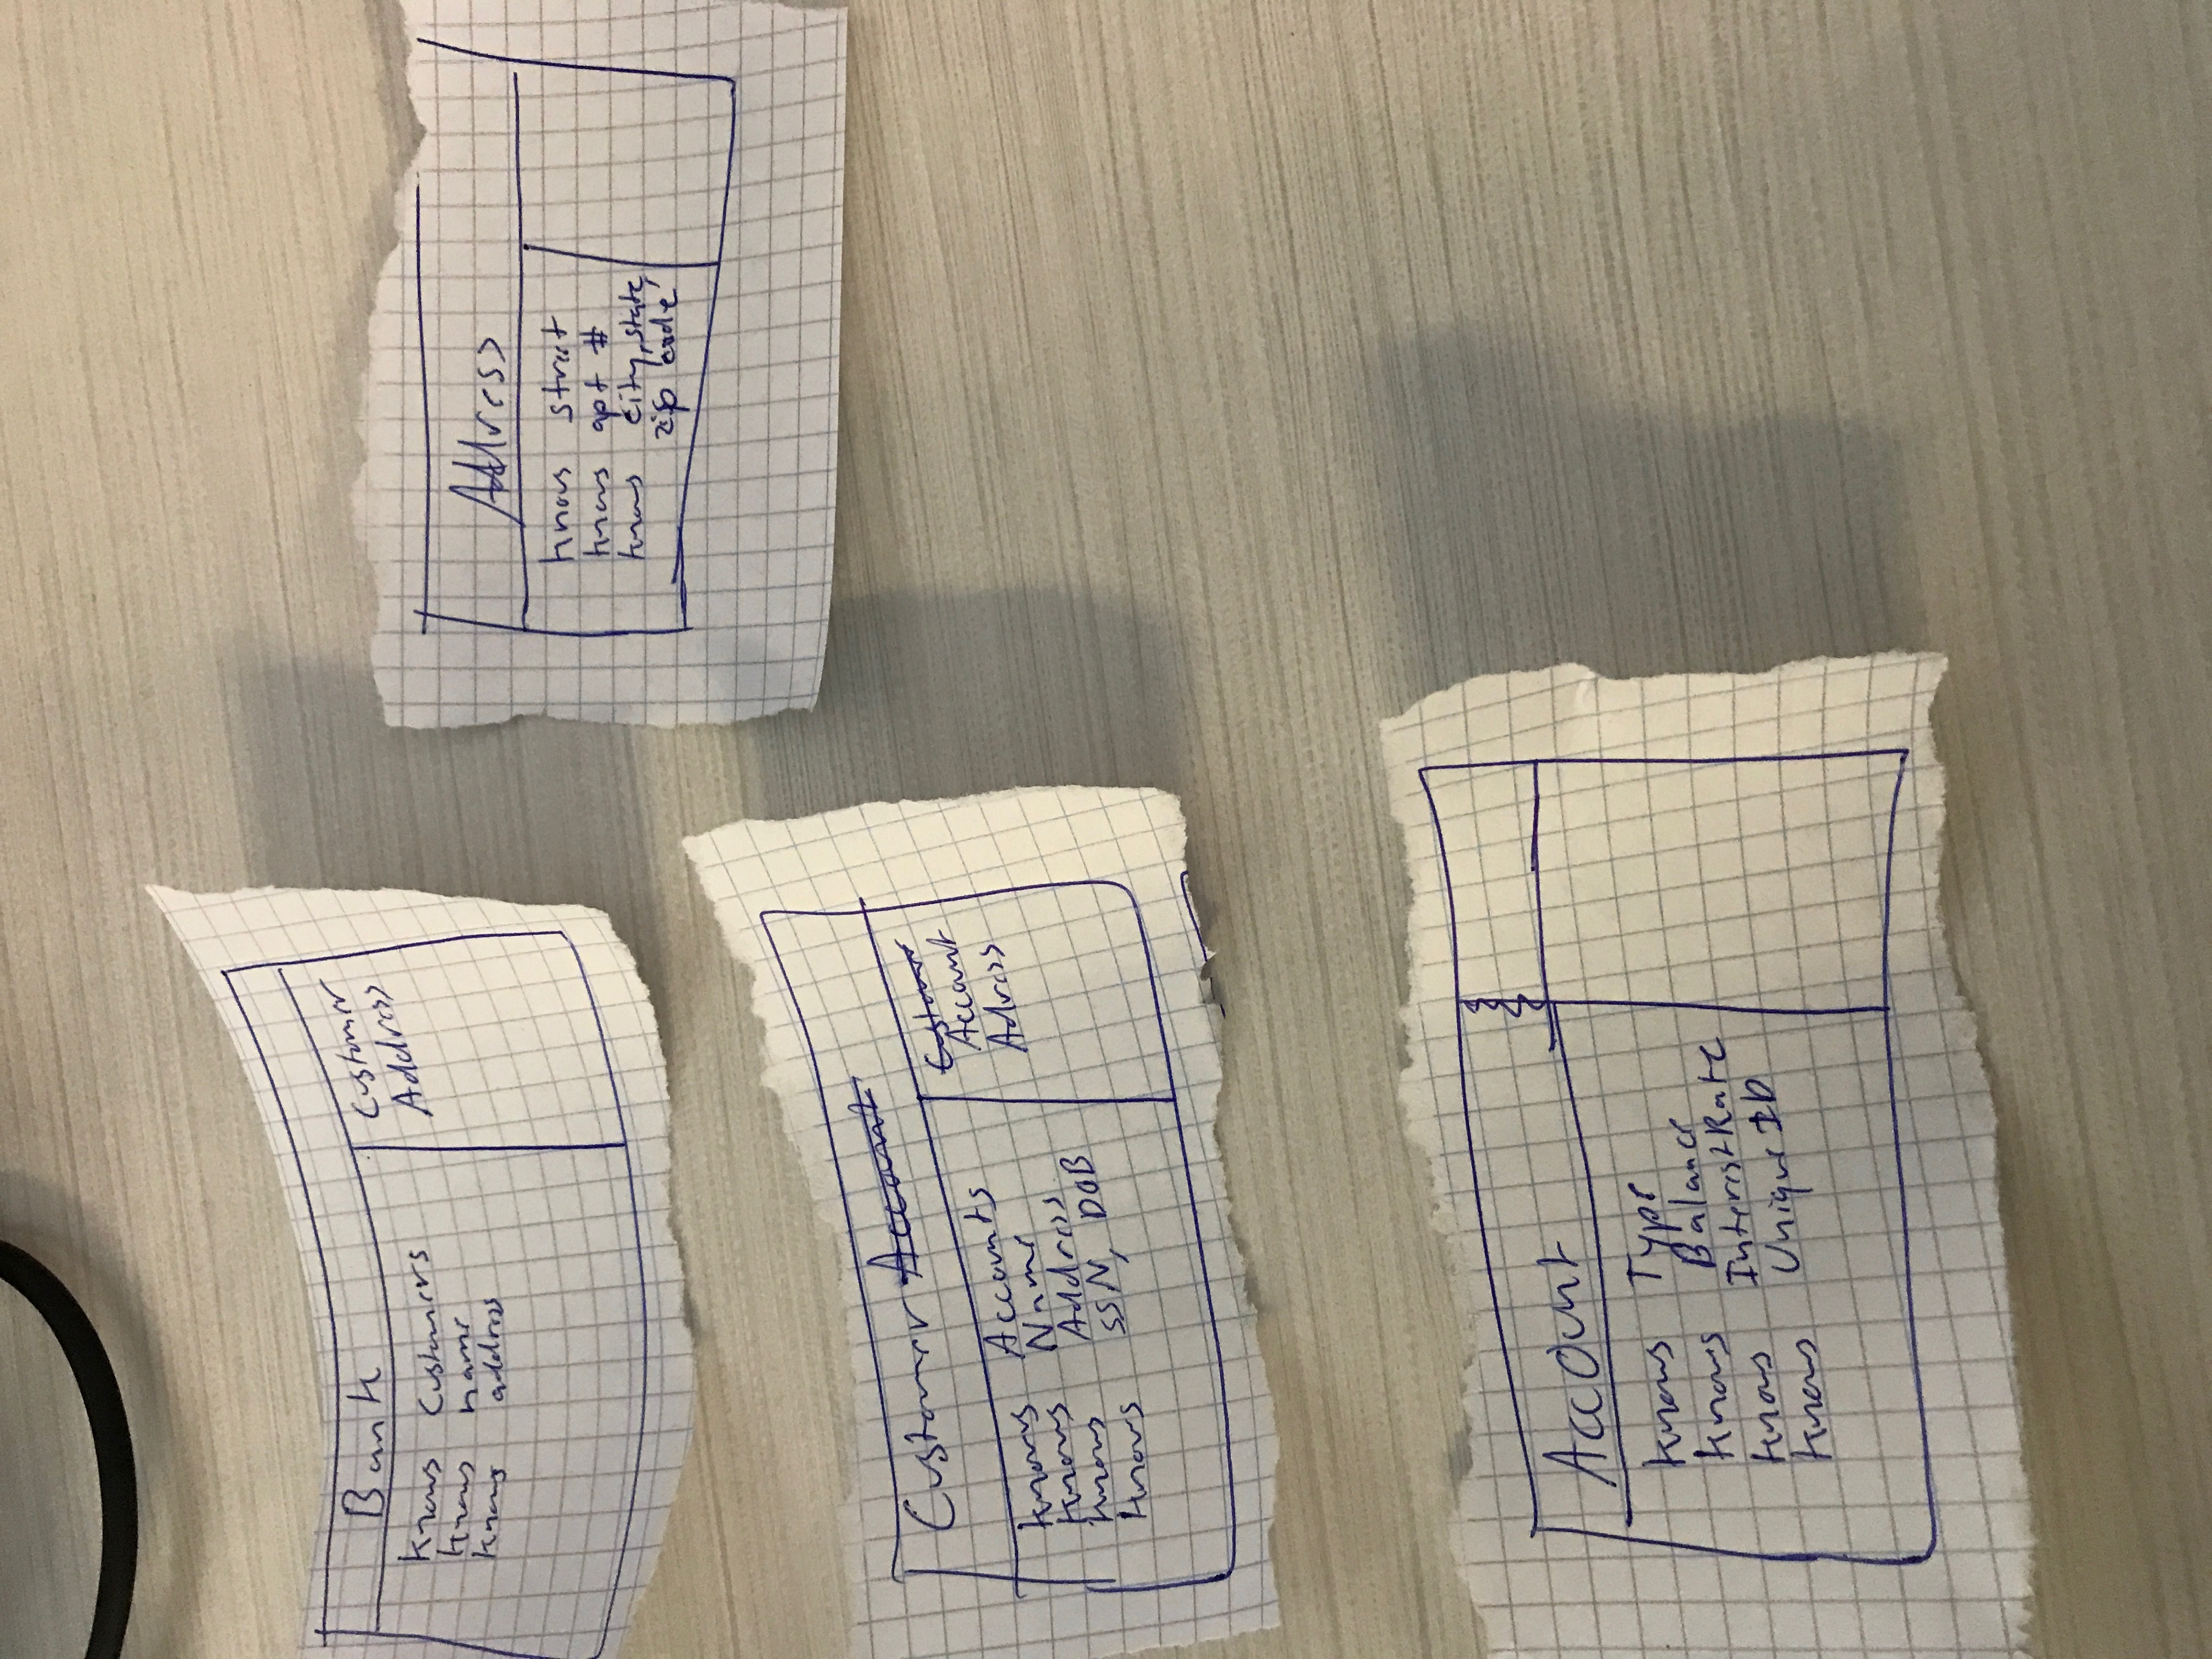 Bank
Knows Customers
Knows name
Knows address
Customer
Address
Address
Knows street
Knows apt #
Knows city, state,
zip code
Customer Account
Knows Accounts
Knows Name
Knows Address
Knows SSN, DOB
Customer
Account
Adress
Account
Knows Type
Knows Balance
Knows InterestRate
Knows Unique ID